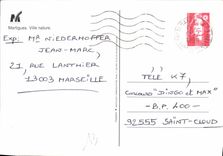 Martigues. Ville nature.
Exp: Mr NIEDERHOFFER
JEAN-MARC
21, RUE LANTHIER
13003 MARSEILLE
TELE K7,
CONCOURS "JINGO et MAX"
- B.P. 400 -
92555 SAINT-CLOUD